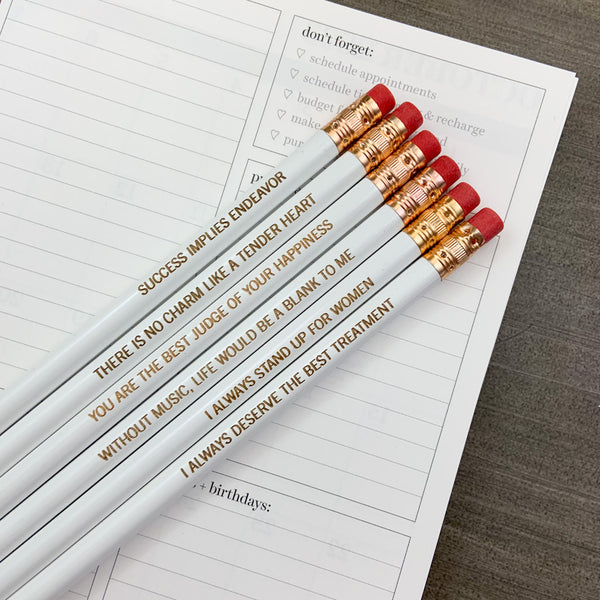 don't forget:
schedule appointments
schedule & recharge
budget
SUCCESS IMPLIES ENDEAVOR
THERE IS NO CHARM LIKE A TENDER HEART
YOU ARE THE BEST JUDGE OF YOUR HAPPINESS
WITHOUT MUSIC, LIFE WOULD BE A BLANK TO ME
I ALWAYS STAND UP FOR WOMEN
I ALWAYS DESERVE THE BEST TREATMENT
+ birthdays: